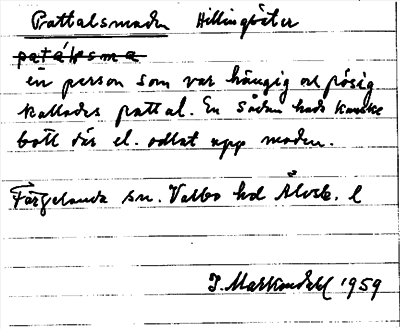 Prattalsmaden Hillingsäter
patálsma
en person som var hängig och pösig
kallades prattal. En sådan hade kanske
bott där el. odlat upp maden.
Färgelanda sn. Valbo hd Älvsb. l
J. Markendahl 1959